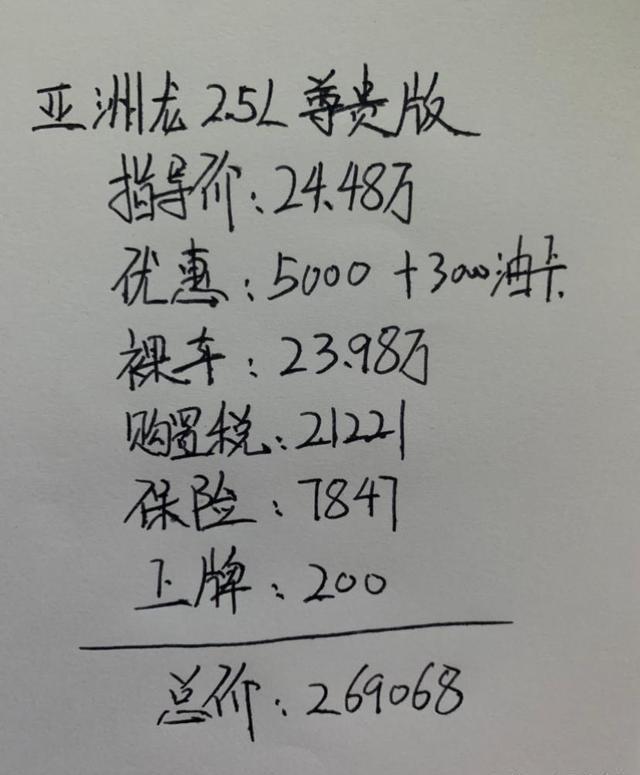 亚洲龙 2.5L 尊贵版
指导价：24.48万
优惠：5000 + 3000油卡
裸车：23.98万
购置税：21221
保险：7847
上牌：200
总价：269068